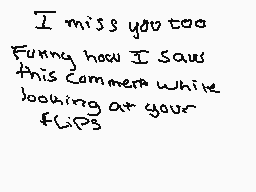 I miss you too
Funny how I saw
this comment while
looking at your
fLiPs